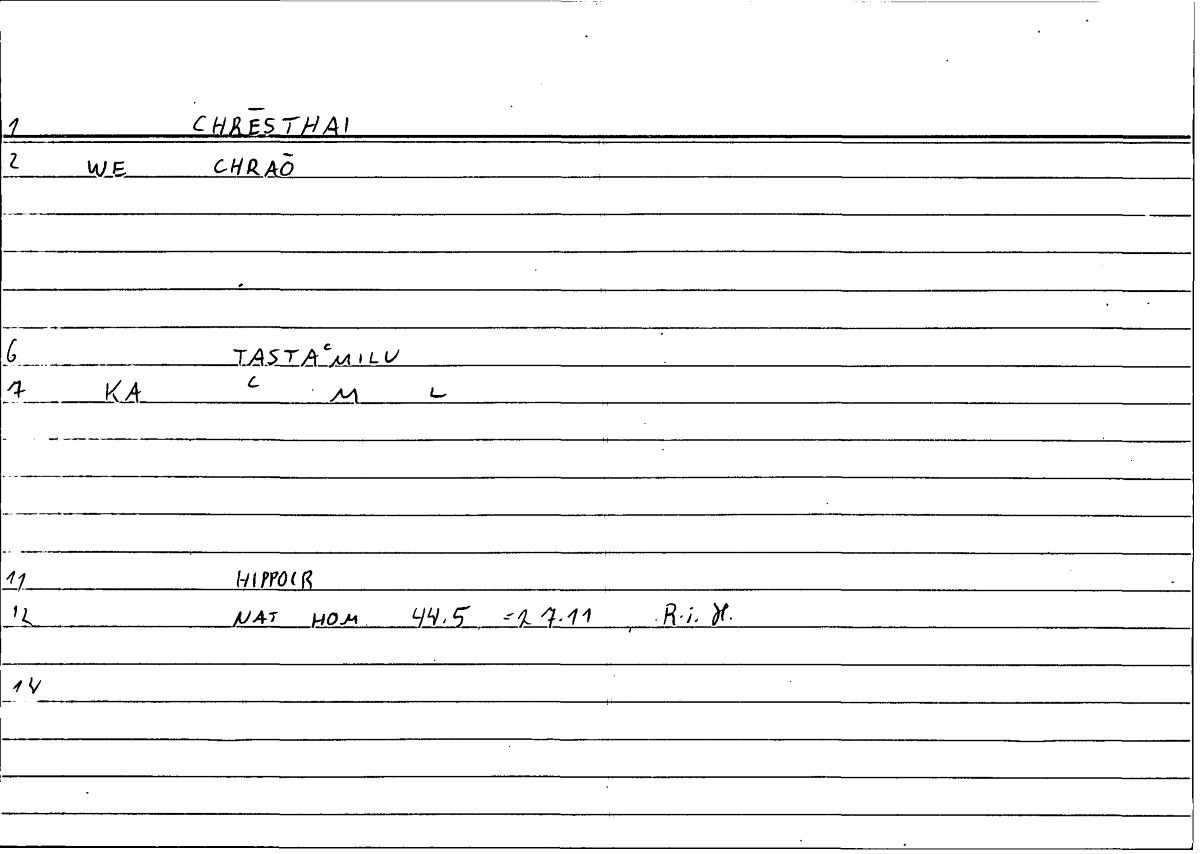 1 CHRĒSTHAI
2 WE CHRAŌ
6 TASTAᶜMILU
7 KA ᶜ M L
11 HIPPOCR
12 NAT HOM 44.5 =27.11 R.i.H.
14